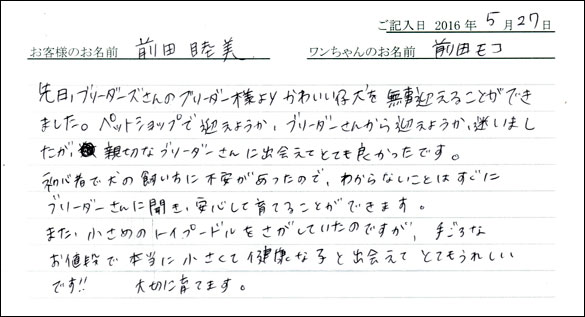 ご記入日 2016 年 5 月 27 日
お客様のお名前 前田 睦美 ワンちゃんのお名前 前田モコ
先日、ブリーダーズさんのブリーダー様よりかわいい仔犬を無事迎えることができ
ました。ペットショップで迎えようか、ブリーダーさんから迎えようか、迷いまし
たが、親切なブリーダーさんに出会えてとても良かったです。
初心者で犬の飼い方に不安があったので、わからないことはすぐに
ブリーダーさんに聞き、安心して育てることができます。
また、小さめのトイプードルをさがしていたのですが、手ごろな
お値段で本当に小さくて健康な子と出会えてとてもうれしい
です!! 大切に育てます。